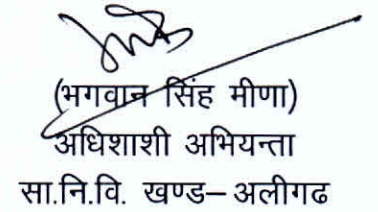 (भगवान सिंह मीणा)
अधिशाशी अभियन्ता
सा.नि.वि. खण्ड–अलीगढ